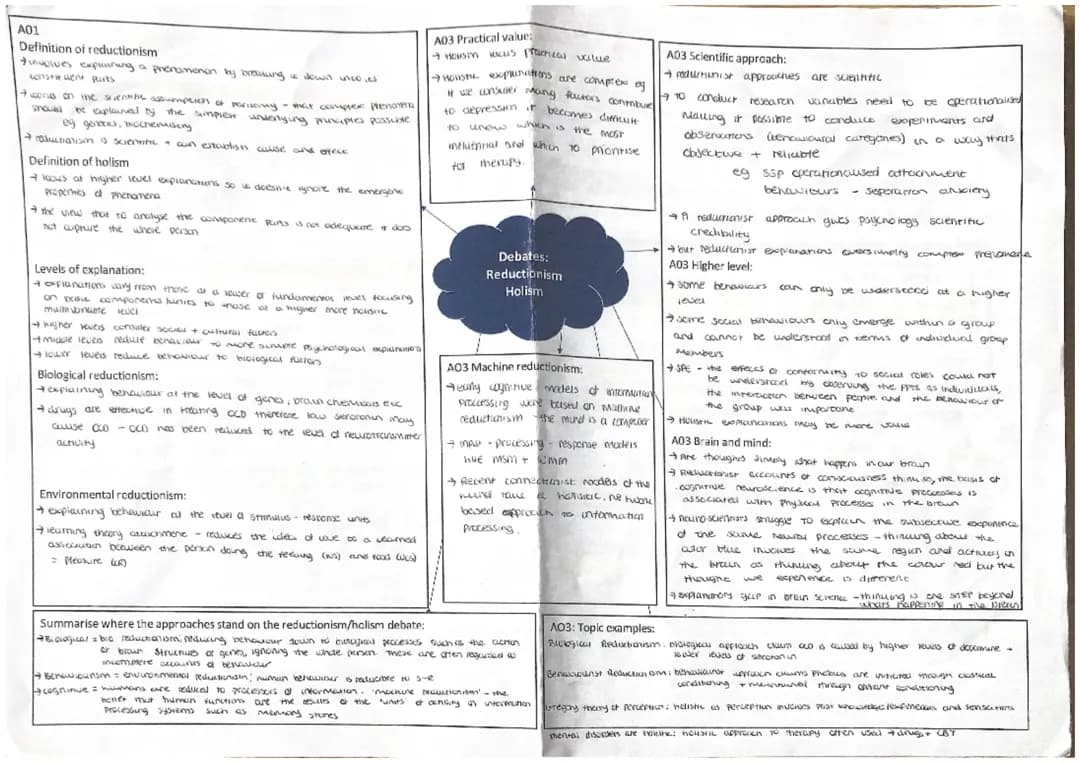 A01
Definition of reductionism
→ involves explaining a phenomenon by breaking it down into its
constituent parts
→ works on the scientific assumption of parsimony - that complex phenomena
should be explained by the simplest underlying principles possible
eg genetics, biochemistry
→ reductionism is scientific + can establish cause and effect
Definition of holism
→ looks at higher level explanations so it doesn't ignore the emergent
properties of phenomena
→ the view that to analyse the component parts is not adequate it does
not capture the whole person
Levels of explanation:
→ explanations vary from those at a lower or fundamental level focusing
on basic components/units to those at a higher more holistic
multivariable level
→ higher levels consider social + cultural factors
→ middle levels reduce behaviour to more simple psychological explanations
→ lower levels reduce behaviour to biological factors
Biological reductionism:
→ explaining behaviour at the level of genes, brain chemicals etc
→ drugs are effective in treating OCD therefore low serotonin may
cause OCD - OCD has been reduced to the level of neurotransmitter
activity
Environmental reductionism:
→ explaining behaviour at the level of stimulus - response units
→ learning theory attachment - reduces the idea of love to a learned
association between the person doing the feeding (NS) and food (UCS)
= pleasure (UR)
A03 Practical value:
→ Holism lacks practical value
→ Holistic explanations are complex eg
if we consider many factors contribute
to depression it becomes difficult
to know which is the most
influential and which to prioritise
for therapy.
Debates:
Reductionism
Holism
A03 Machine reductionism:
→ early cognitive models of information
processing were based on machine
reductionism - the mind is a computer
→ input - processing - response models
like MSM + WMM
→ Recent connectionist models of the
mind take a holistic, network
based approach to information
processing.
A03 Scientific approach:
→ reductionist approaches are scientific
→ To conduct research variables need to be operationalised
Making it possible to conduct experiments and
observations (behavioural categories) in a way thats
objective + reliable
eg SSP operationalised attachment
behaviours - separation anxiety
→ A reductionist approach gives psychology scientific
credibility
→ but reductionist explanations oversimplify complex phenomena
A03 Higher level:
→ some behaviours can only be understood at a higher
level
→ some social behaviours only emerge within a group
and cannot be understood in terms of individual group
members
→ SPE - the effects of conformity to social roles could not
be understood by observing the PPTS as individuals,
the interaction between people and the behaviour of
the group was important
→ Holistic explanations may be more valid
A03 Brain and mind:
→ Are thoughts simply what happens in our brain
→ Reductionist accounts of consciousness think so, the basis of
cognitive neuroscience is that cognitive processes is
associated with physical processes in the brain
→ neuroscientists struggle to explain the subjective experience
of the same neural processes - thinking about the
color blue involves the same region and activity in
the brain as thinking about the colour red but the
thought we experience is different
→ explanatory gap in brain science - thinking is one step beyond
whats happening in the brain
Summarise where the approaches stand on the reductionism/holism debate:
→ Biological = bio reductionism; reducing behaviour down to biological processes such as the action
of brain structures or genes, ignoring the whole person. These are often regarded as
incomplete accounts of behaviour
→ Behaviourism = environmental reductionism; human behaviour is reducible to S-R
→ cognitive = humans are reduced to processors of information. 'machine reductionism' - the
belief that human functions are the results of the 'units' of activity in information
processing systems such as memory stores
A03: Topic examples:
Biological Reductionism: biological approach claim OCD is caused by higher levels of dopamine +
lower levels of serotonin
Behaviourist Reductionism: behaviourist approach claims phobias are initiated through classical
conditioning + maintained through operant conditioning
Gregory theory of perception: holistic as perception involves past knowledge/experiences and sensations
mental disorders are holistic: holistic approach to therapy often used → drugs + CBT